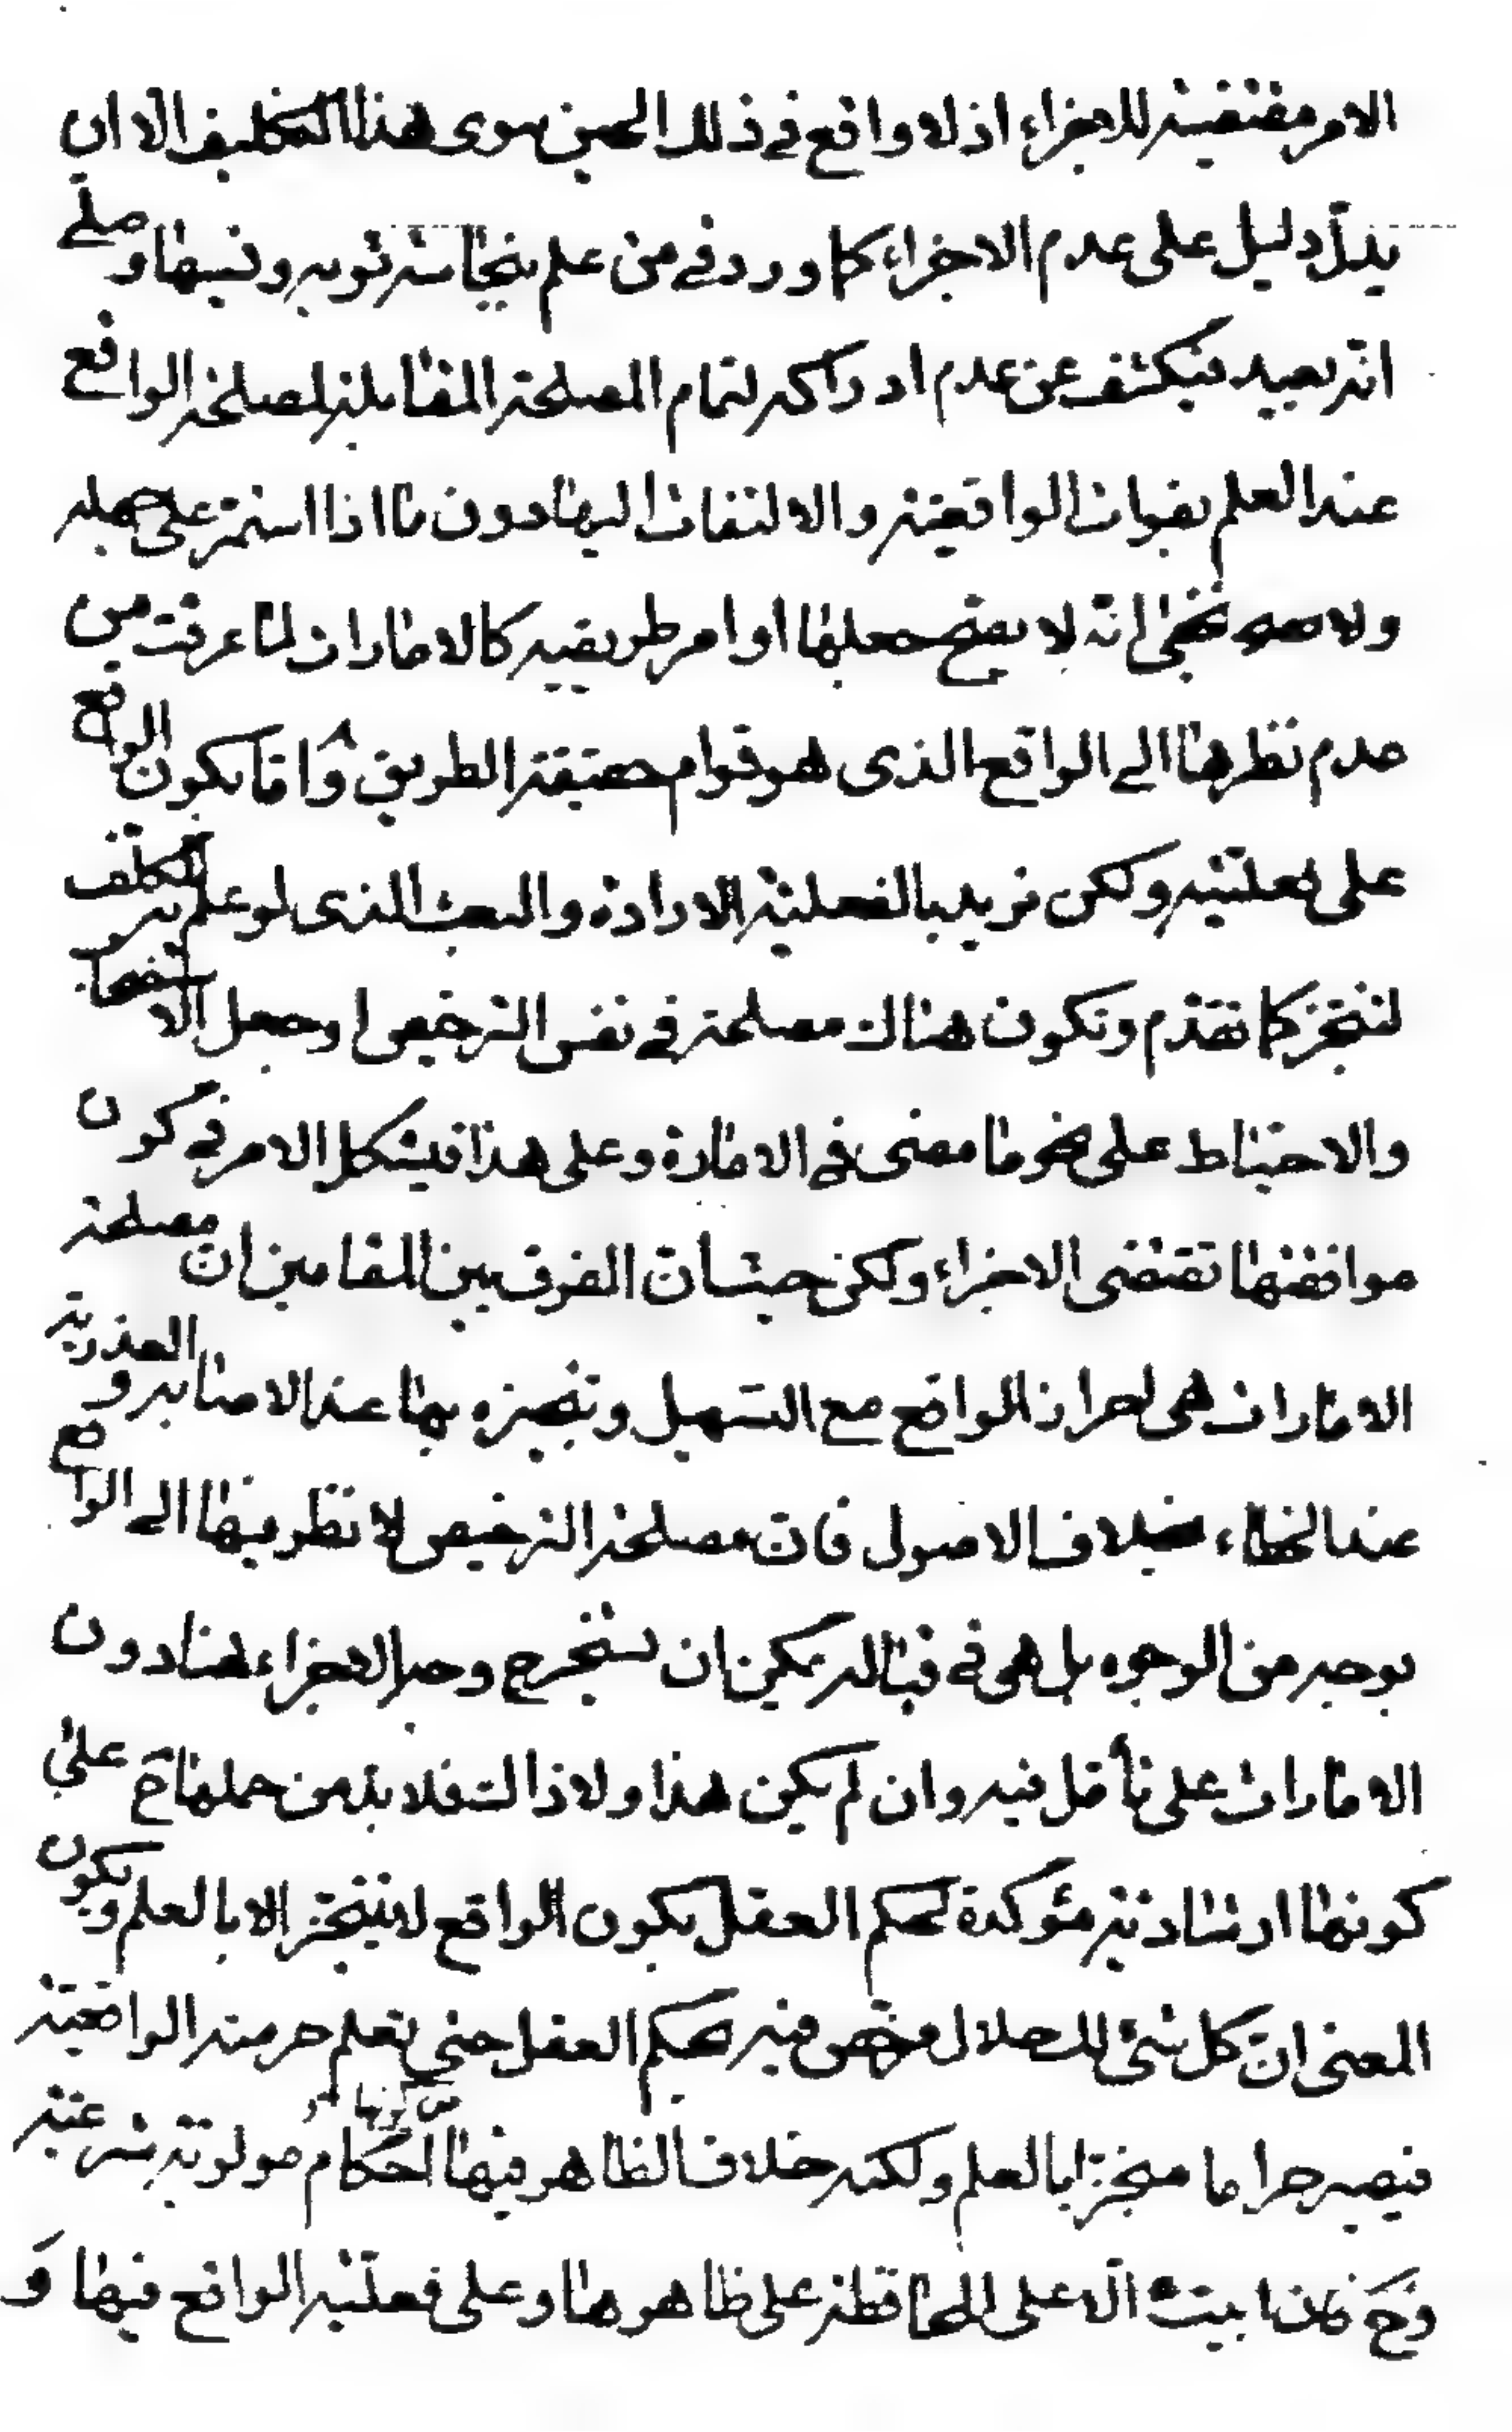 الامر مقتضية للاجزاء اذ لا واقع في ذلك الحين سوى هذا التكليف الا ان
يدلّ دليل على عدم الاجزاء كما ورد في من علم بنجاسة ثوبه ونسيها وصلّى
انّه يعيد فيكشف عن عدم ادراكه لتمام المصلحة المقابلة لمصلحة الواقع
عند العلم بفوات الواقعيّة والالتفات اليها دون ما اذا استمرّ على جهله
ولا يخفى انّه لا يصح جعلها اوامر طريقيه كالامارات لما عرفت من
عدم نظرها الى الواقع الذى هو قوام حقيقة الطريق وامّا يكون الواقع
على فعليّته ولكن نريد بالفعليّة الارادة والبعث الذى لو علم به المكلّف
لتنجّز كما تقدّم وتكون هناك مصلحة في نفس الترخيص او جعل الاستصحاب
والاحتياط على نحو ما مضى في الامارة وعلى هذا فيشكل الامر في كون
موافقتها تقتضى الاجزاء ولكن حيث ان الفرق بين المقامين انّ مصلحة
الامارات هى احراز الواقع مع التسهيل وتنجيزه بها عند الاصابه و العذرية
عند الخطاء بخلاف الاصول فانّ مصلحة الترخيص لا نظر فيها الى الواقع
بوجه من الوجوه بل هى في قباله يمكن ان يستخرج وجه الاجزاء هنا دون
الامارات على تأمّل فيه وان لم يكن هذا ولا ذاك فلا بدّ من حملها ح على
كونها ارشاديّة مؤكدة لحكم العقل بكون الواقع لا يتنجّز الا بالعلم ويكون
المعنى انّ كل شئ لك حلال مرخص فيه بحكم العقل حتى تعلم حرمته الواقعيّة
فيصير حراما منجّزا بالعلم ولكنه خلاف الظاهر فيها من كونها احكام مولويّة شرعيّة
وح فان ابيت الّا على المحافظة على ظاهرها وعلى فعليّة الواقع فيها و